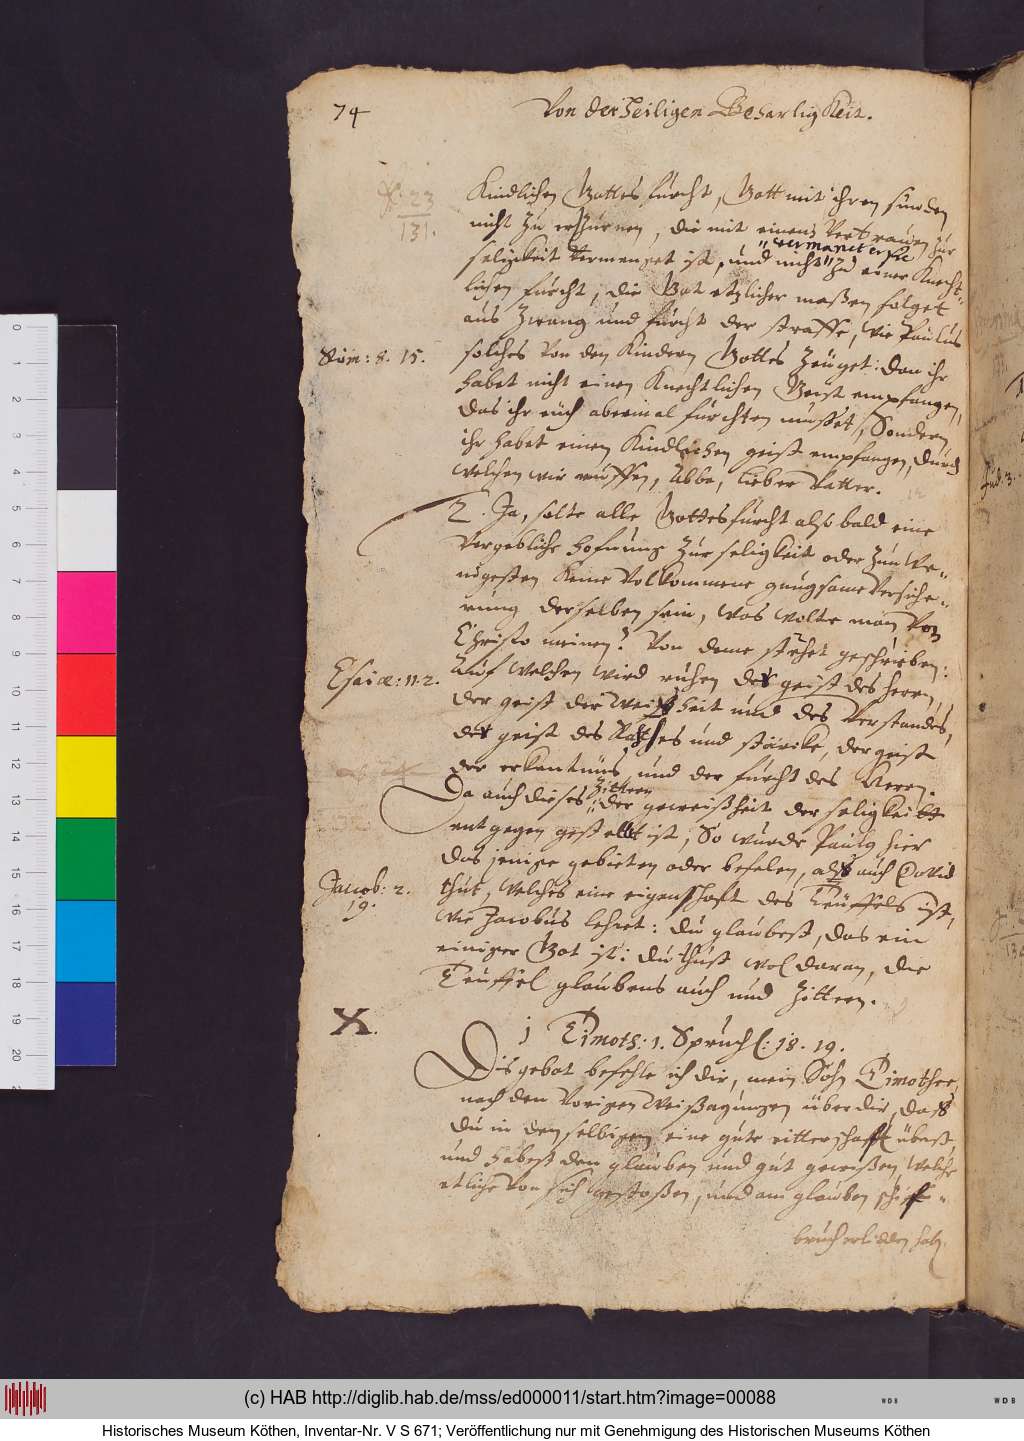 74
Von der Heiligen Beharligkeit.
23
131.
Kindlichen Gottes furcht, Gott mit ihren sunden
nicht zu erzurnen, die mit einem Vertrauen zur
"vermanet er sie
seligkeit vermenget ist, und nicht "zu einer Knecht-
lichen furcht, die Got etzlicher maßen folget
aus Zwang und furcht der straffe, wie Paulus
Röm: 8. 15.
solches von den Kindern Gottes Zeuget: dan ihr
habet nicht einen Knechtlichen Geist empfangen,
das ihr euch abermal furchten musset, Sondern
ihr habet einen Kindlichen geist empfangen, durch
welchen wir ruffen, Abba, lieber Vatter.
2. Ja, solte alle Gottesfurcht also bald eine
vergebliche hofnung zur seligkeit oder zum we-
nigesten keine volkommene gnugsame versiche-
rung derselben sein, was wolte man von
Christo meinen? Von deme stehet geschrieben:
Esaiæ: 11. 2.
Auf welchen wird ruhen der geist des herrn
der geist der Weißheit und des Verstandes,
der geist des Rahtes und stärcke, der geist
der erkantnus, und der furcht des Herrn.
Zittern
Da auch dieses "der gewißheit der seligkeit
entgegen gestellt ist, So wurde Paulus hier
das jenige gebieten oder befelen, als auch David
Jacob: 2.
19.
thut, welches eine eigenschaft des Teuffels ist,
wie Jacobus lehret: du glaubest, das ein
einiger Got ist: du thust wol daran, die
Teuffel glaubens auch und zittern.
X.
1 Timoth: 1. Spruch: 18. 19.
Dis gebot befehle ich dir, mein Sohn Timothee,
nach den vorigen Weißagungen über dir, daß
du in denselbigen eine gute ritterschafft übest,
und habest den glauben und gut gewissen, welche
etliche von sich gestoßen, und am glauben schif-
bruch erlidden hab.
0
2
3
4
5
6
7
8
9
10
11
12
13
14
15
16
17
18
19
20
(c) HAB http://diglib.hab.de/mss/ed000011/start.htm?image=00088
WDB
WDB
Historisches Museum Köthen, Inventar-Nr. V S 671; Veröffentlichung nur mit Genehmigung des Historischen Museums Köthen